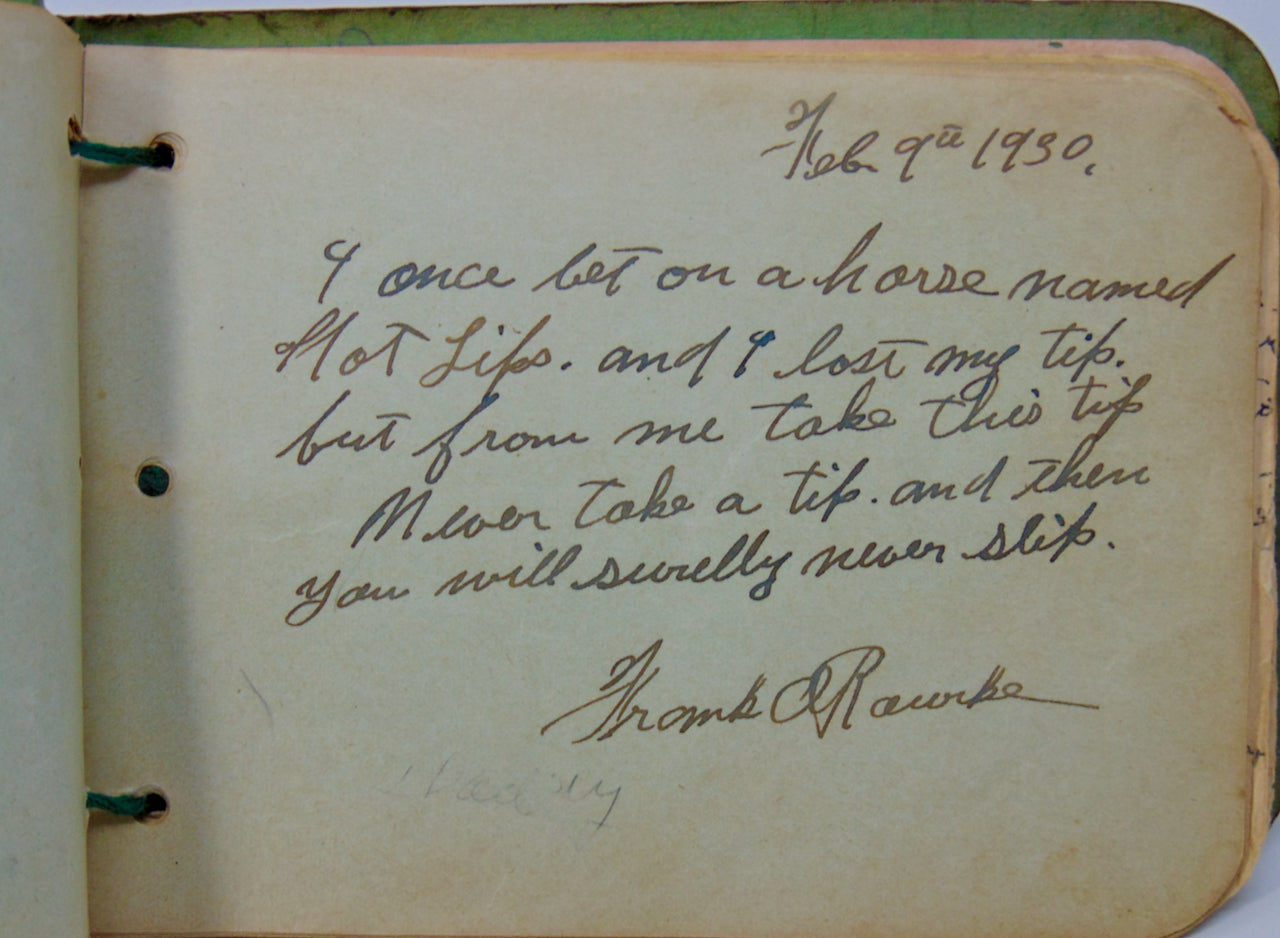 Feb 9th 1930.
I once bet on a horse named
Hot Lips. and I lost my tip.
but from me take this tip
Never take a tip. and then
you will surelly never slip.
Frank ORourke